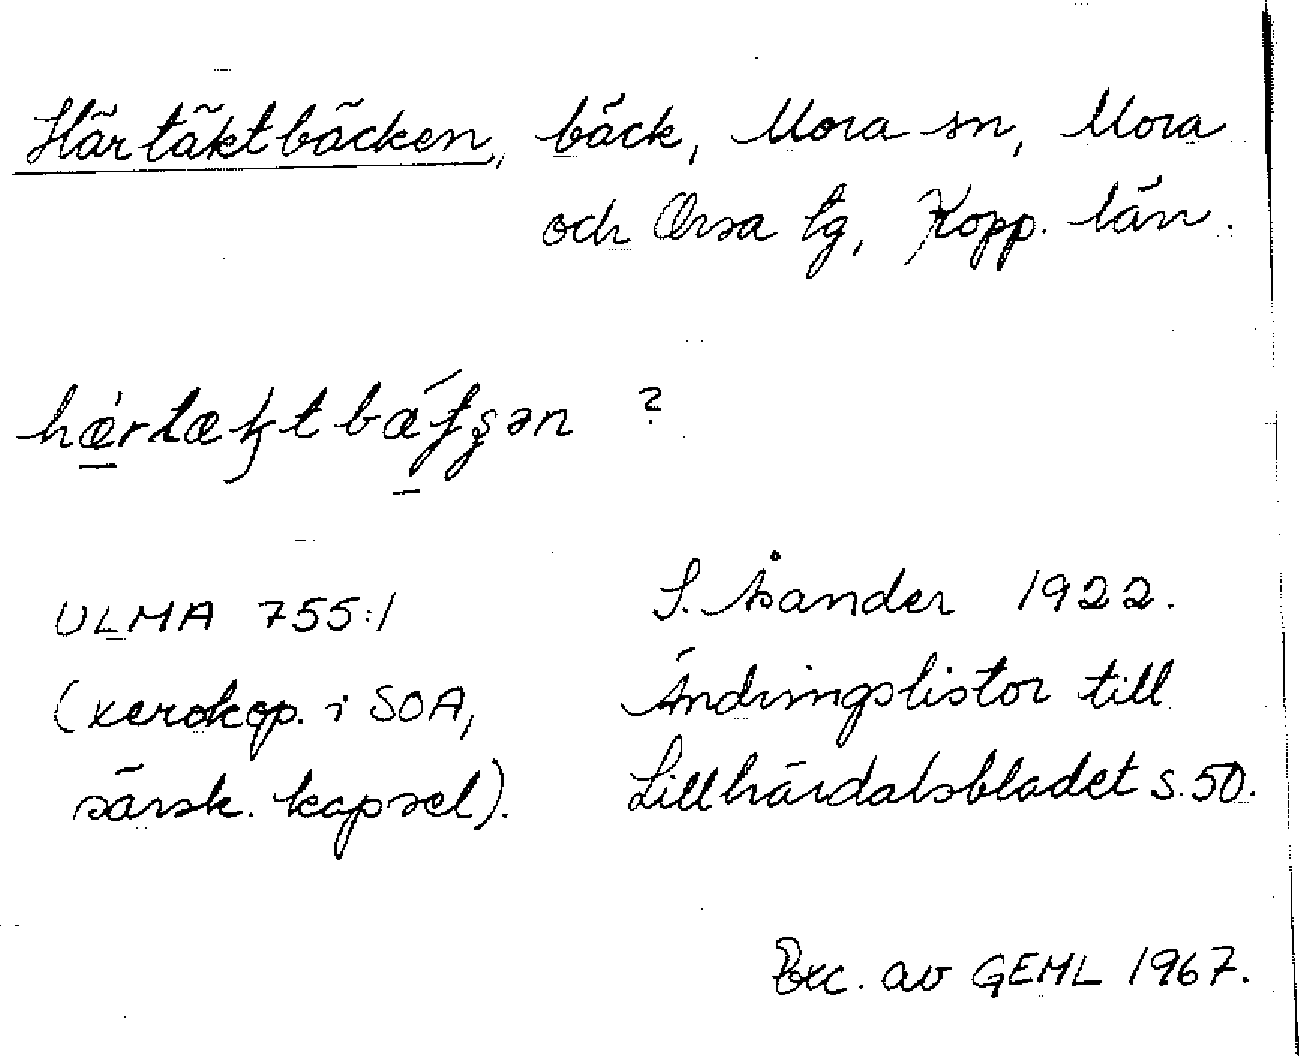 Härtäktbäcken, bäck, Mora sn, Mora
och Orsa tg, Kopp. län.
hærtæktbæ ?
ULMA 755:1
(xerokop. i SOA,
särsk. kapsel).
S. Åsander 1922.
Ändringslistor till
Lillhärdalsbladet s. 50.
Exc. av GEML 1967.